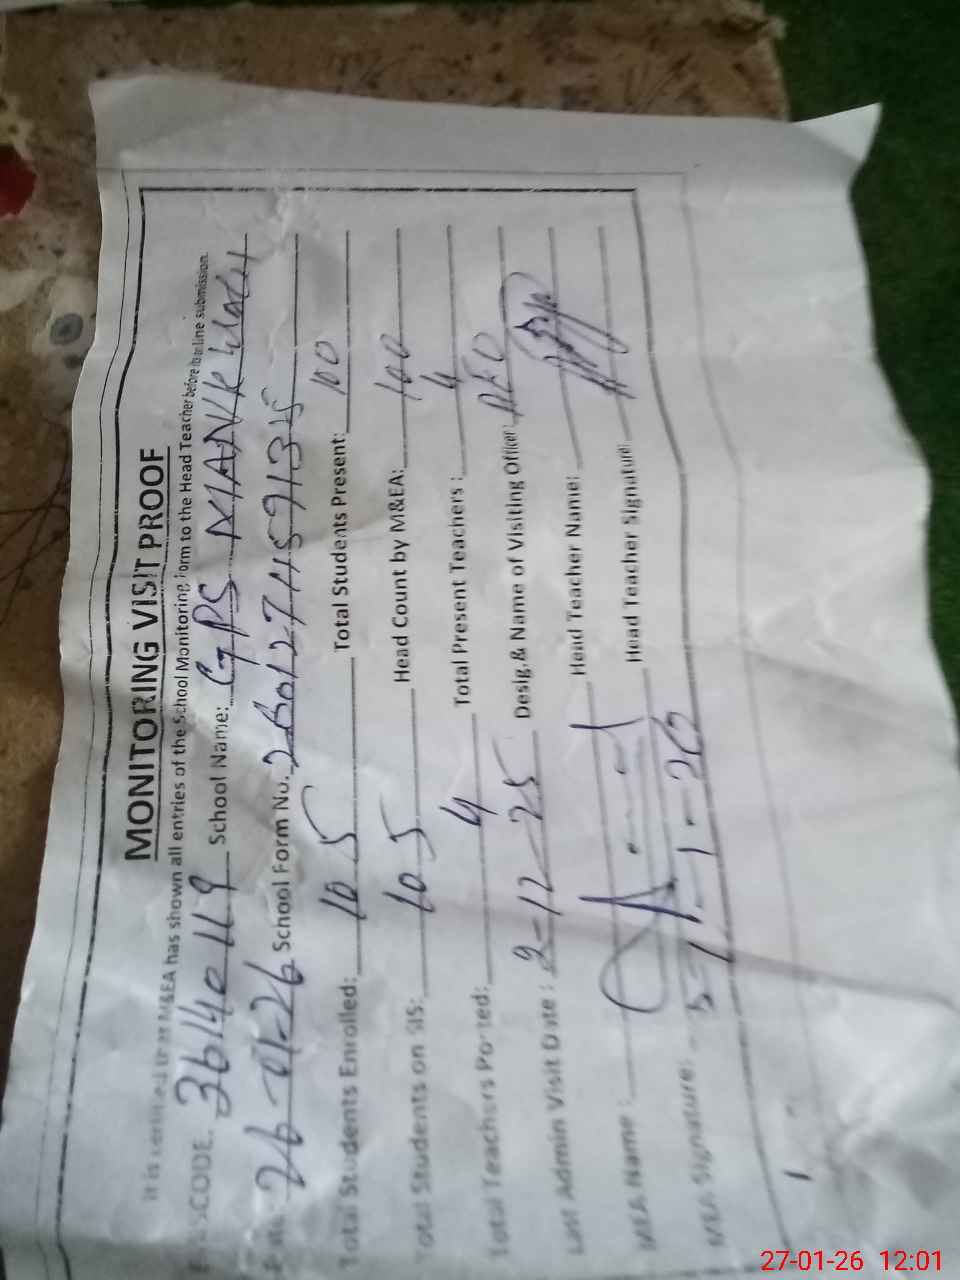 MONITORING VISIT PROOF
It is certified that M&EA has shown all entries of the School Monitoring Form to the Head Teacher before its online submission.
SCODE. 36140119 School Name: GPS MANK
26-01-26 School Form No. 260127115913
Total Students Enrolled: 105 Total Students Present: 100
Total Students on SIS: 105 Head Count by M&EA: 100
Total Teachers Posted: 4 Total Present Teachers: 4
Last Admin Visit Date: 2-12-25 Desig.& Name of Visiting Officer: AEO
MEA Name: Head Teacher Name:
MEA Signature: Head Teacher Signature:
27-01-26 12:01